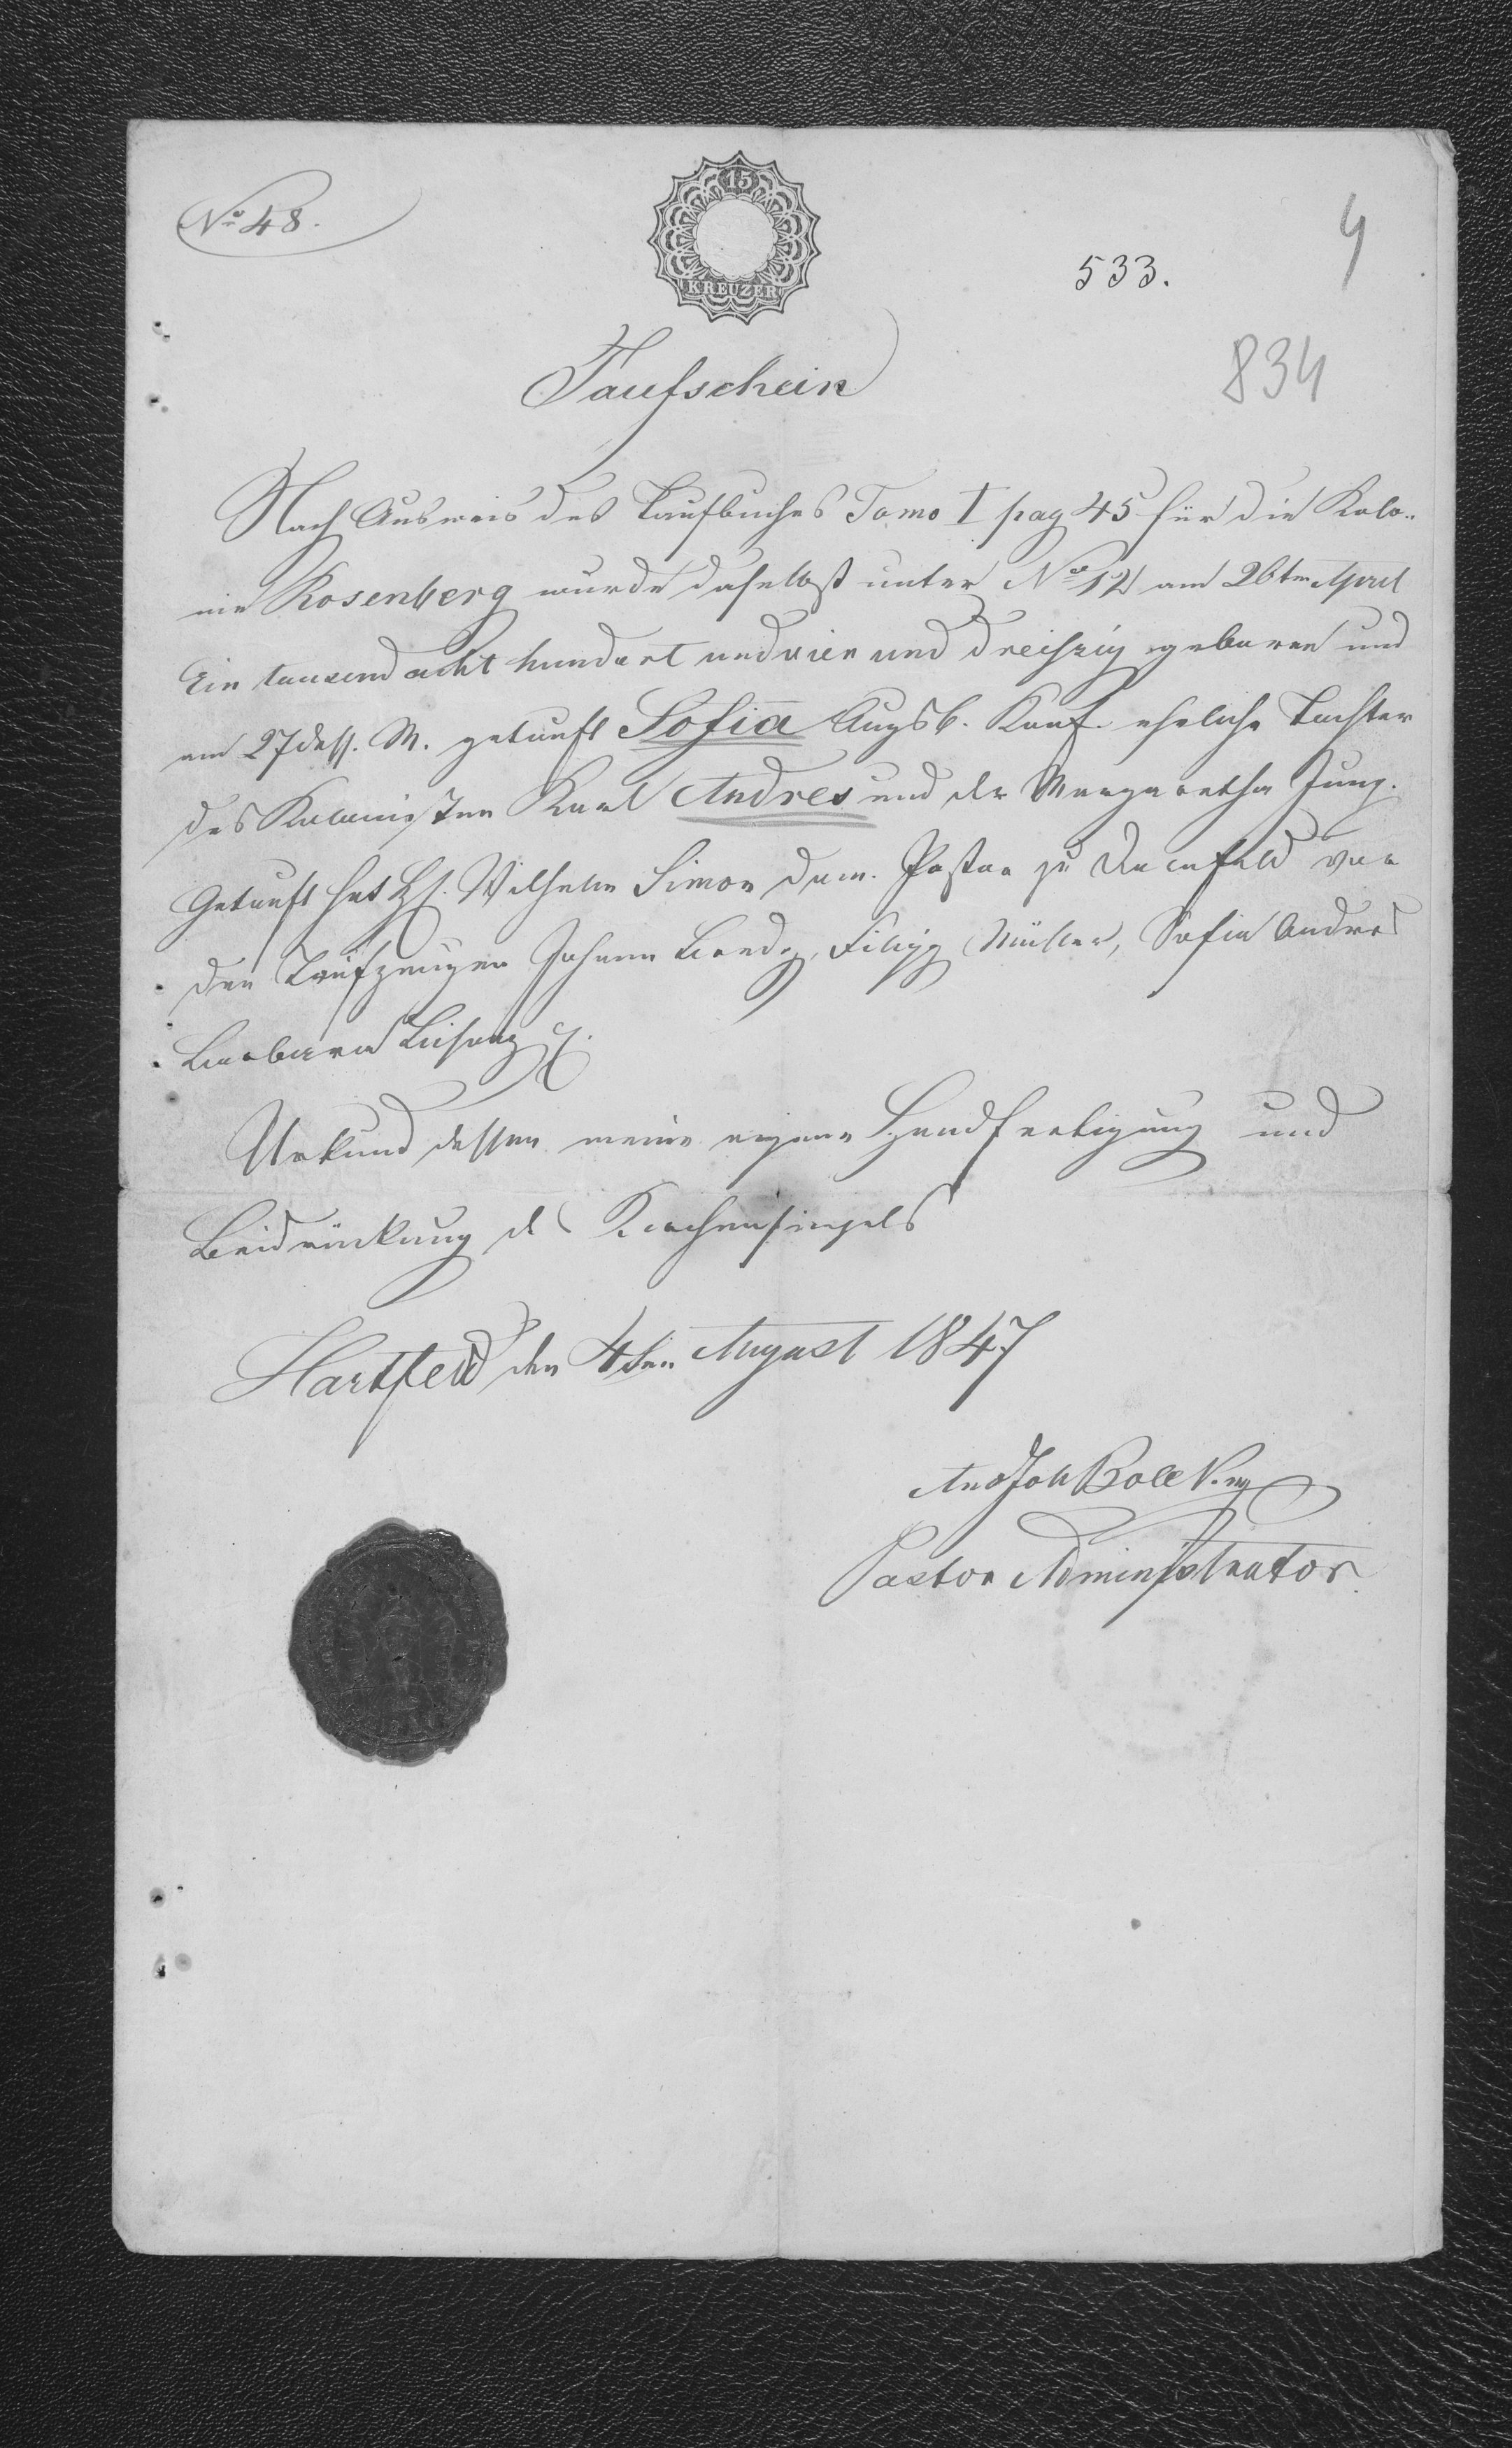 No 48.
15
KREUZER
4
533.
834
Taufschein
Nach Ausweis des Taufbuches Tomo I pag 45 für die Kolo-
nie Rosenberg wurde daselbst unter No 12 am 26ten April
Ein tausend acht hundert und vier und dreißig geboren und
am 27 dess. M. getauft Sofia Augsb. Konf. eheliche Tochter
des Kolonisten Karl Andres und der Margaretha Jung.
Getauft hat H. Wilhelm Simon Pastor zu Dornfeld vor
den Taufzeugen Johann Filipp Müller, Sofia Andres
Barbara
Urkund dessen meine eigene Handfertigung und
Beidrückung des Kirchensiegels
Hartfeld den 4ten August 1847
And Joh Boll
Pastor Administrator